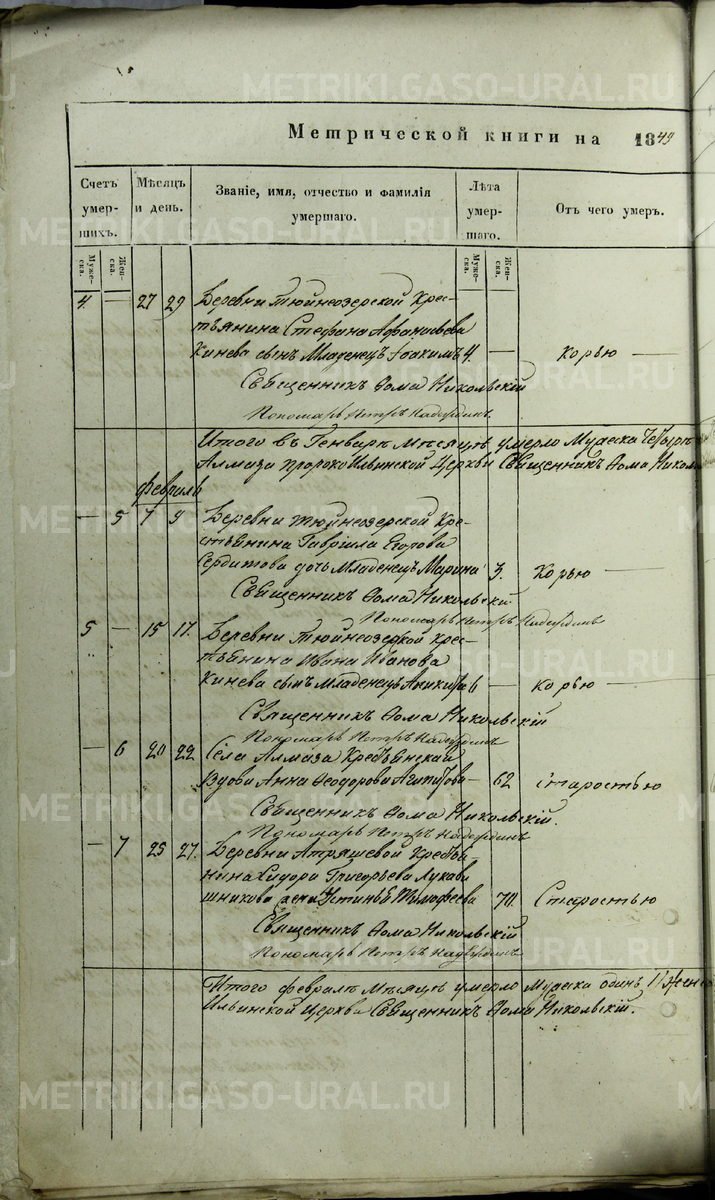 METRIKI.GASO-URAL.RU
Метрической книги на 1849
Счетъ умерших.
Мѣсяцъ и день.
Званіе, имя, отчество и фамилія умершаго.
Лѣта умершаго.
Отъ чего умеръ.
Муже-ска. Жен-ска.
Муже-ска. Жен-ска.
4. — 27 29 Деревни Тюйнеозерской Крес-
тьянина Стефана Афанасьева
Кинева сынъ Младенецъ Іоакимъ 4. — корью —
Священникъ Ѳома Никольскій
Пономарь Петръ
Итого въ Генварѣ мѣсяцѣ умерло Мужеска Четыре
Алмаза Пророко Ильинской Церкви Священникъ Ѳома Никол
Февраль
— 5 7 9 Деревни Тюйнеозерской Кре-
стьянина Гавріила Егорова
Сердитова дочь Младенецъ Марина 3. Корью —
Священникъ Ѳома Никольскій
Пономарь Петръ
5 — 15 17. Деревни Тюйнеозерской Крес-
тьянина Ивана Иванова
Кинева сынъ Младенецъ Аникита 6 — корью —
Священникъ Ѳома Никольскій
Пономарь Петръ
— 6 20 22 Села Алмаза Крестьянская
Вдова Анна Ѳеодорова — 62 старостью
Священникъ Ѳома Никольскій.
Пономарь Петръ
— 7 25 27. Деревни Атряшевой Крестья-
нина Сидора Григорьева Лукави
шникова жена Устинья Тимофеева 70. Старостью
Священникъ Ѳома Никольскій
Пономарь Петръ
Итого Февралѣ Мѣсяцѣ умерло Мужеска одинъ Женс
Ильинской Церкви Священникъ Ѳома Никольскій.